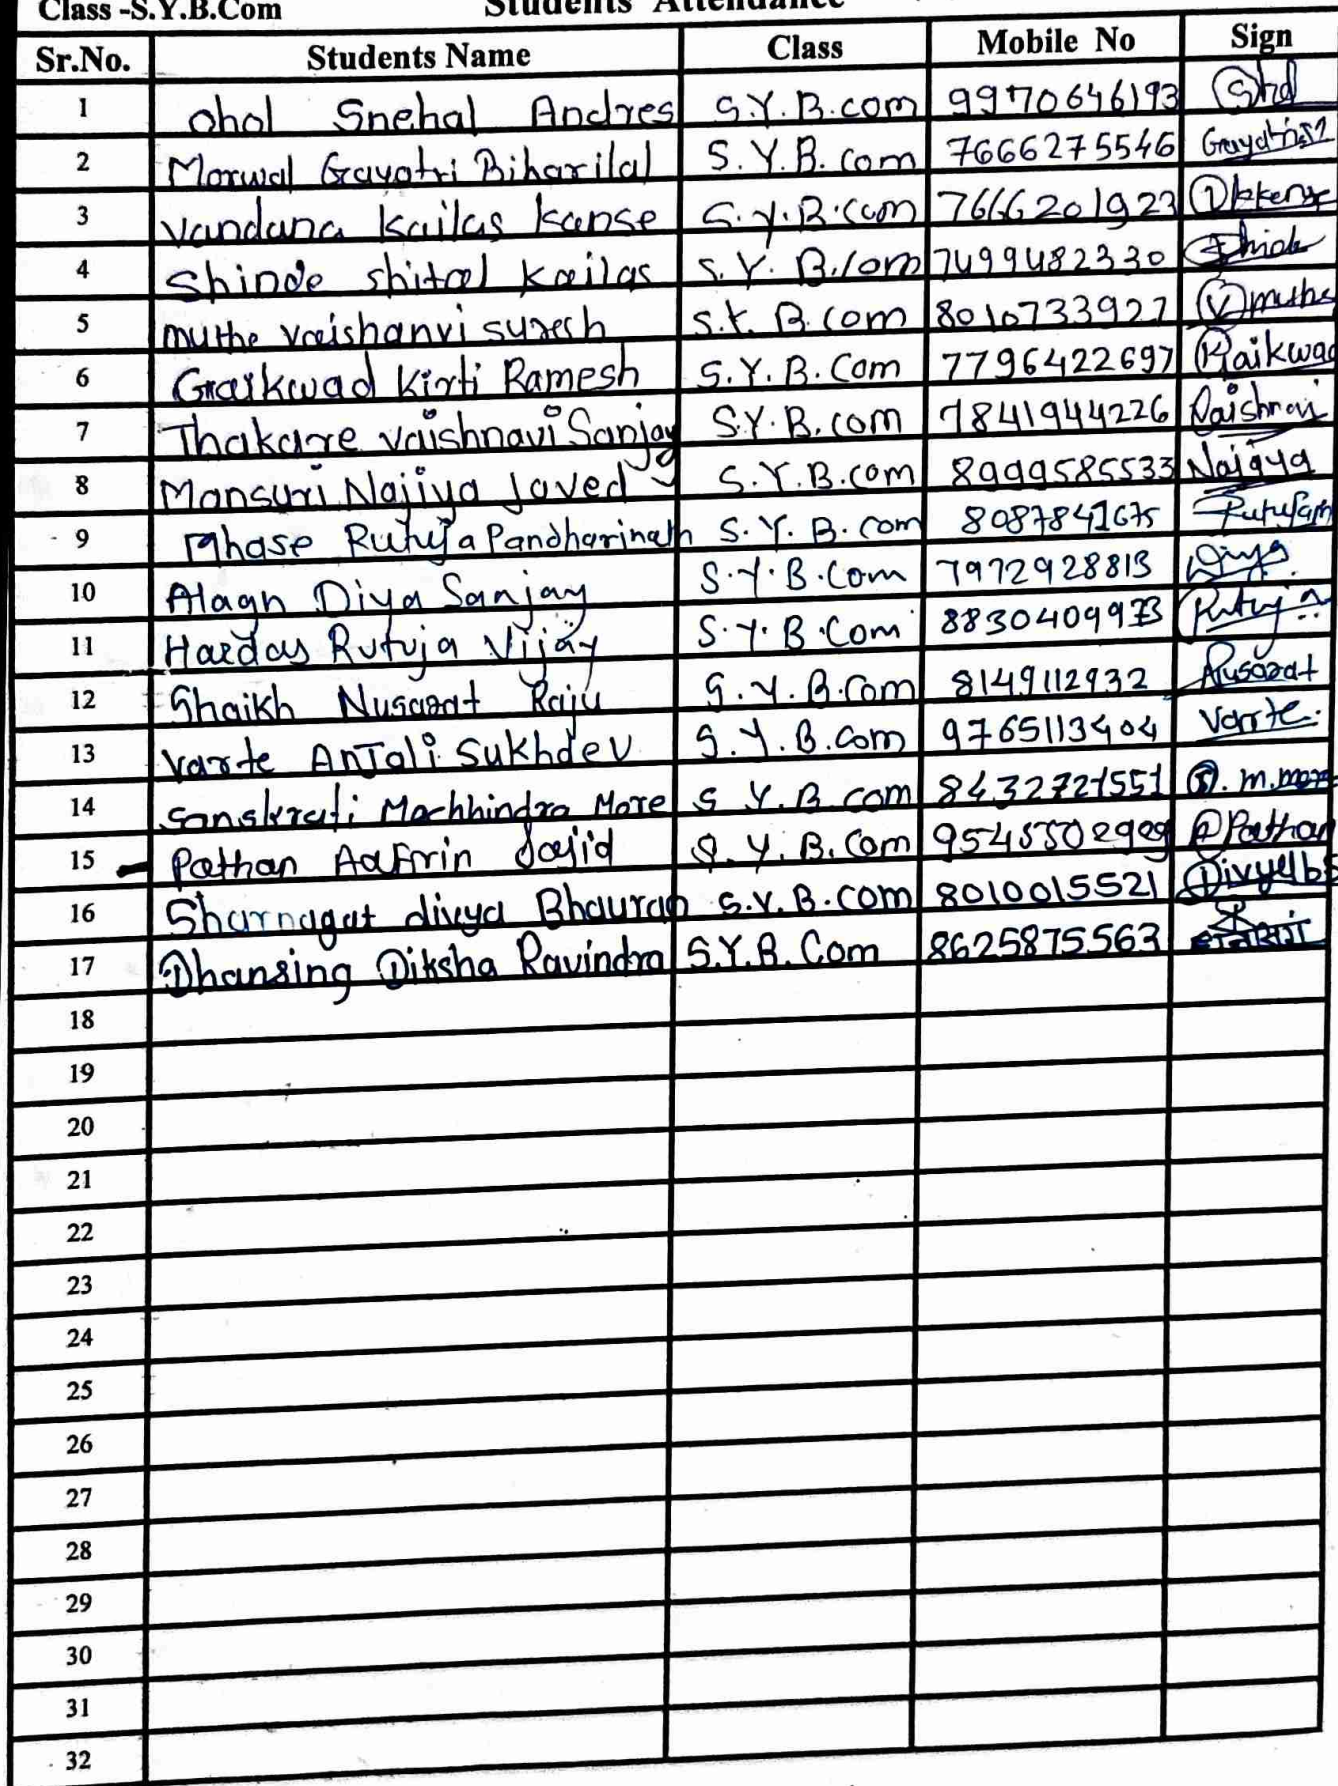 Class -S.Y.B.Com Students Attendance
Sr.No. Students Name Class Mobile No Sign
1 Ohol Snehal Andres S.Y.B.com 9970646193
2 Morwal Gayatri Biharilal S.Y.B. Com 7666275546
3 Vandana Kailas Kapse S.y.B.Com 7666201923
4 Shinde shital Kailas S.Y. B.Com 7499482330
5 muthe vaishanvi suresh S.Y. B.com 8010733927
6 Gaikwad Kirti Ramesh S.Y.B. Com 7796422697 Gaikwad
7 Thakare vaishnavi Sanjay S.Y.B.com 7841944226 Vaishnavi
8 Mansuri Najiya Javed S.Y.B.com 8999585533 Najiya
9 Mhase Rutuja Pandharinath S.Y.B.com 8087841675
10 Alagh Diya Sanjay S.Y.B.Com 7972928813 Diya
11 Hardas Rutuja Vijay S.Y.B.Com 88304099
12 Shaikh Nusarat Raju S.Y.B.Com 8149112932 Nusarat
13 Varte AnJali Sukhdev S.Y.B.Com 9765113404 Varte
14 Sanskruti Machhindra More S Y.B com 8432721551 S.m.more
15 Pathan Aafrin Sajid S.Y.B.Com 9545502929 A Pathan
16 Sharnagat divya Bhaurao S.Y.B.com 8010015521
17 Dhansing Diksha Ravindra S.Y.B.Com 8625875563
18
19
20
21
22
23
24
25
26
27
28
29
30
31
32